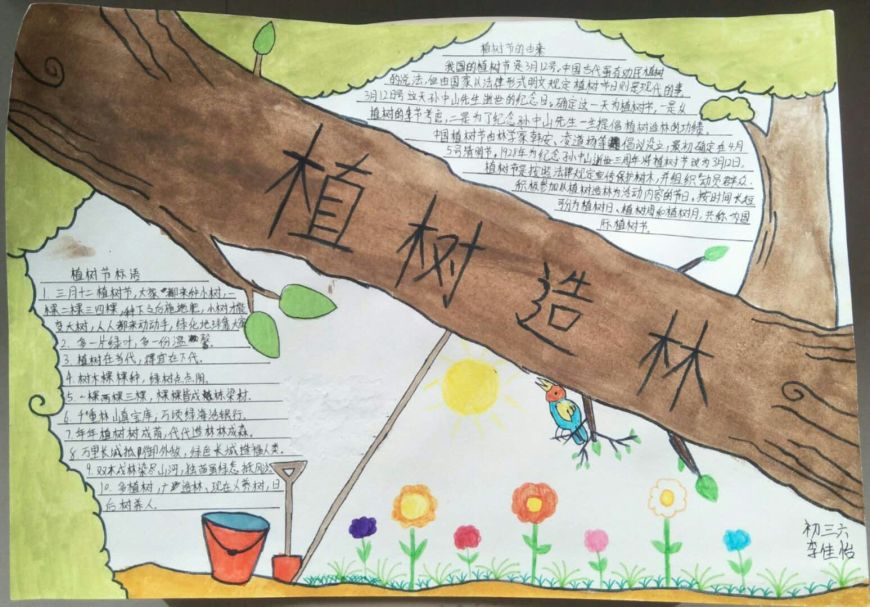 植树造林
植树节的由来
我国的植树节是3月12号,中国古代事有劝民植树
的说法,但由国家从法律形式明文规定植树节日则是现代的事.
3月12日号这天孙中山先生逝世的纪念日。确定这一天为植树节,一是从
植树的季节考虑,二是为了纪念孙中山先生一生提倡植树造林的功绩.
中国植树节由林学家韩安、凌道扬等倡议设立,最初确定在4月
5号清明节,1928年为纪念孙中山逝世三周年将植树节改为3月12日。
植树节是按照法律规定宣传保护树木,并组织动员群众
积极参加以植树造林为活动内容的节日,按时间长短
可分为植树日、植树周和植树月,共称为国
际植树节.
植树节标语
1. 三月十二植树节,大家都来种小树,一
棵二棵三四棵,种下之后施地肥,小树才能
变大树,人人都来动动手,绿化地球靠大家
2. 多一片绿叶,多一份温馨.
3. 植树在当代,得宜在下代.
4. 树木棵棵种,绿树点点同.
5. 一棵两棵三棵,棵棵皆成梁材.
6. 千重林山真宝库,万顷绿海活银行.
7. 年年植树树成荫,代代造林林成森.
8. 万里长城抵御外敌,绿色长城造福人类.
9. 双木成林染尽山河,独苗
10. 多植树,广造林、现在人养树,日
后树养人.
初三六
李佳怡